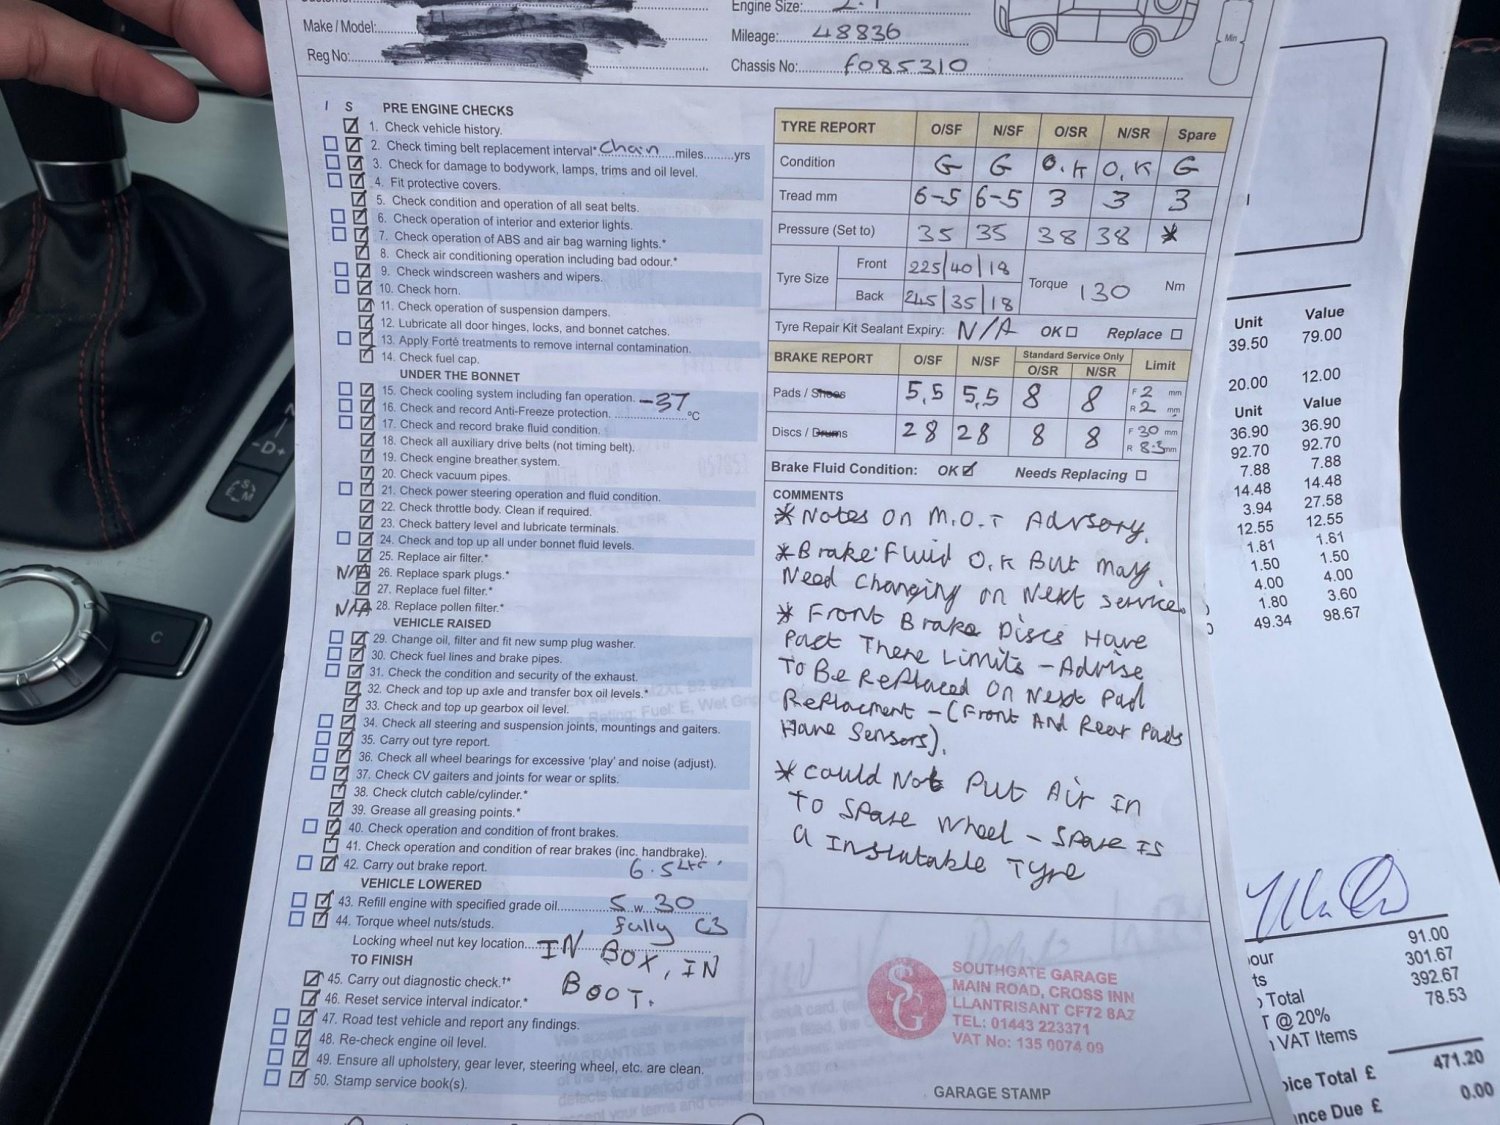 Engine Size:
Make / Model:
Mileage: 48836
Reg No:
Chassis No: F085310
Min
I S PRE ENGINE CHECKS
1. Check vehicle history.
2. Check timing belt replacement interval* Chain miles yrs
3. Check for damage to bodywork, lamps, trims and oil level.
4. Fit protective covers.
5. Check condition and operation of all seat belts.
6. Check operation of interior and exterior lights.
7. Check operation of ABS and air bag warning lights.*
8. Check air conditioning operation including bad odour.*
9. Check windscreen washers and wipers.
10. Check horn.
11. Check operation of suspension dampers.
12. Lubricate all door hinges, locks, and bonnet catches.
13. Apply Forté treatments to remove internal contamination.
14. Check fuel cap.
UNDER THE BONNET
15. Check cooling system including fan operation.
16. Check and record Anti-Freeze protection. -37 °C
17. Check and record brake fluid condition.
18. Check all auxiliary drive belts (not timing belt).
19. Check engine breather system.
20. Check vacuum pipes.
21. Check power steering operation and fluid condition.
22. Check throttle body. Clean if required.
23. Check battery level and lubricate terminals.
24. Check and top up all under bonnet fluid levels.
25. Replace air filter.*
N/A 26. Replace spark plugs.*
27. Replace fuel filter.*
N/A 28. Replace pollen filter.*
VEHICLE RAISED
29. Change oil, filter and fit new sump plug washer.
30. Check fuel lines and brake pipes.
31. Check the condition and security of the exhaust.
32. Check and top up axle and transfer box oil levels.*
33. Check and top up gearbox oil level.
34. Check all steering and suspension joints, mountings and gaiters.
35. Carry out tyre report.
36. Check all wheel bearings for excessive 'play' and noise (adjust).
37. Check CV gaiters and joints for wear or splits.
38. Check clutch cable/cylinder.*
39. Grease all greasing points.*
40. Check operation and condition of front brakes.
41. Check operation and condition of rear brakes (inc. handbrake).
42. Carry out brake report. 6.5
VEHICLE LOWERED
43. Refill engine with specified grade oil. 5 w 30
44. Torque wheel nuts/studs. fully C3
Locking wheel nut key location. IN BOX, IN
BOOT.
TO FINISH
45. Carry out diagnostic check.†*
46. Reset service interval indicator.*
47. Road test vehicle and report any findings.
48. Re-check engine oil level.
49. Ensure all upholstery, gear lever, steering wheel, etc. are clean.
50. Stamp service book(s).
TYRE REPORT O/SF N/SF O/SR N/SR Spare
Condition G G O.K O.K G
Tread mm 6-5 6-5 3 3 3
Pressure (Set to) 35 35 38 38 *
Tyre Size Front 225/40/18 Torque 130 Nm
Back 245/35/18
Tyre Repair Kit Sealant Expiry: N/A OK Replace
BRAKE REPORT O/SF N/SF Standard Service Only O/SR N/SR Limit
Pads / Shoes 5.5 5.5 8 8 F 2 mm R 2 mm
Discs / Drums 28 28 8 8 F 30 mm R 8.5 mm
Brake Fluid Condition: OK Needs Replacing
COMMENTS
* Notes On M.O.T Advsory.
* Brake Fluid O.K But may
Need Changing on Next Service
* Front Brake Discs Have
Past There Limits - Advise
To Be Replaced On Next Pad
Replacment - (Front And Rear Pads
Have Sensors).
* Could Not Put Air In
To Spare Wheel - Spare Is
a Inslutable Tyre
SG
SOUTHGATE GARAGE
MAIN ROAD, CROSS INN
LLANTRISANT CF72 8AZ
TEL: 01443 223371
VAT No: 135 9074 09
GARAGE STAMP
Unit Value
39.50 79.00
20.00 12.00
Unit Value
36.90 36.90
92.70 92.70
7.88 7.88
14.48 14.48
3.94 27.58
12.55 12.55
1.81 1.81
1.50 1.50
4.00 4.00
1.80 3.60
49.34 98.67
our 91.00
ts 301.67
Total 392.67
T @ 20% 78.53
VAT Items
oice Total £ 471.20
nce Due £ 0.00
N
D+
S
M
C